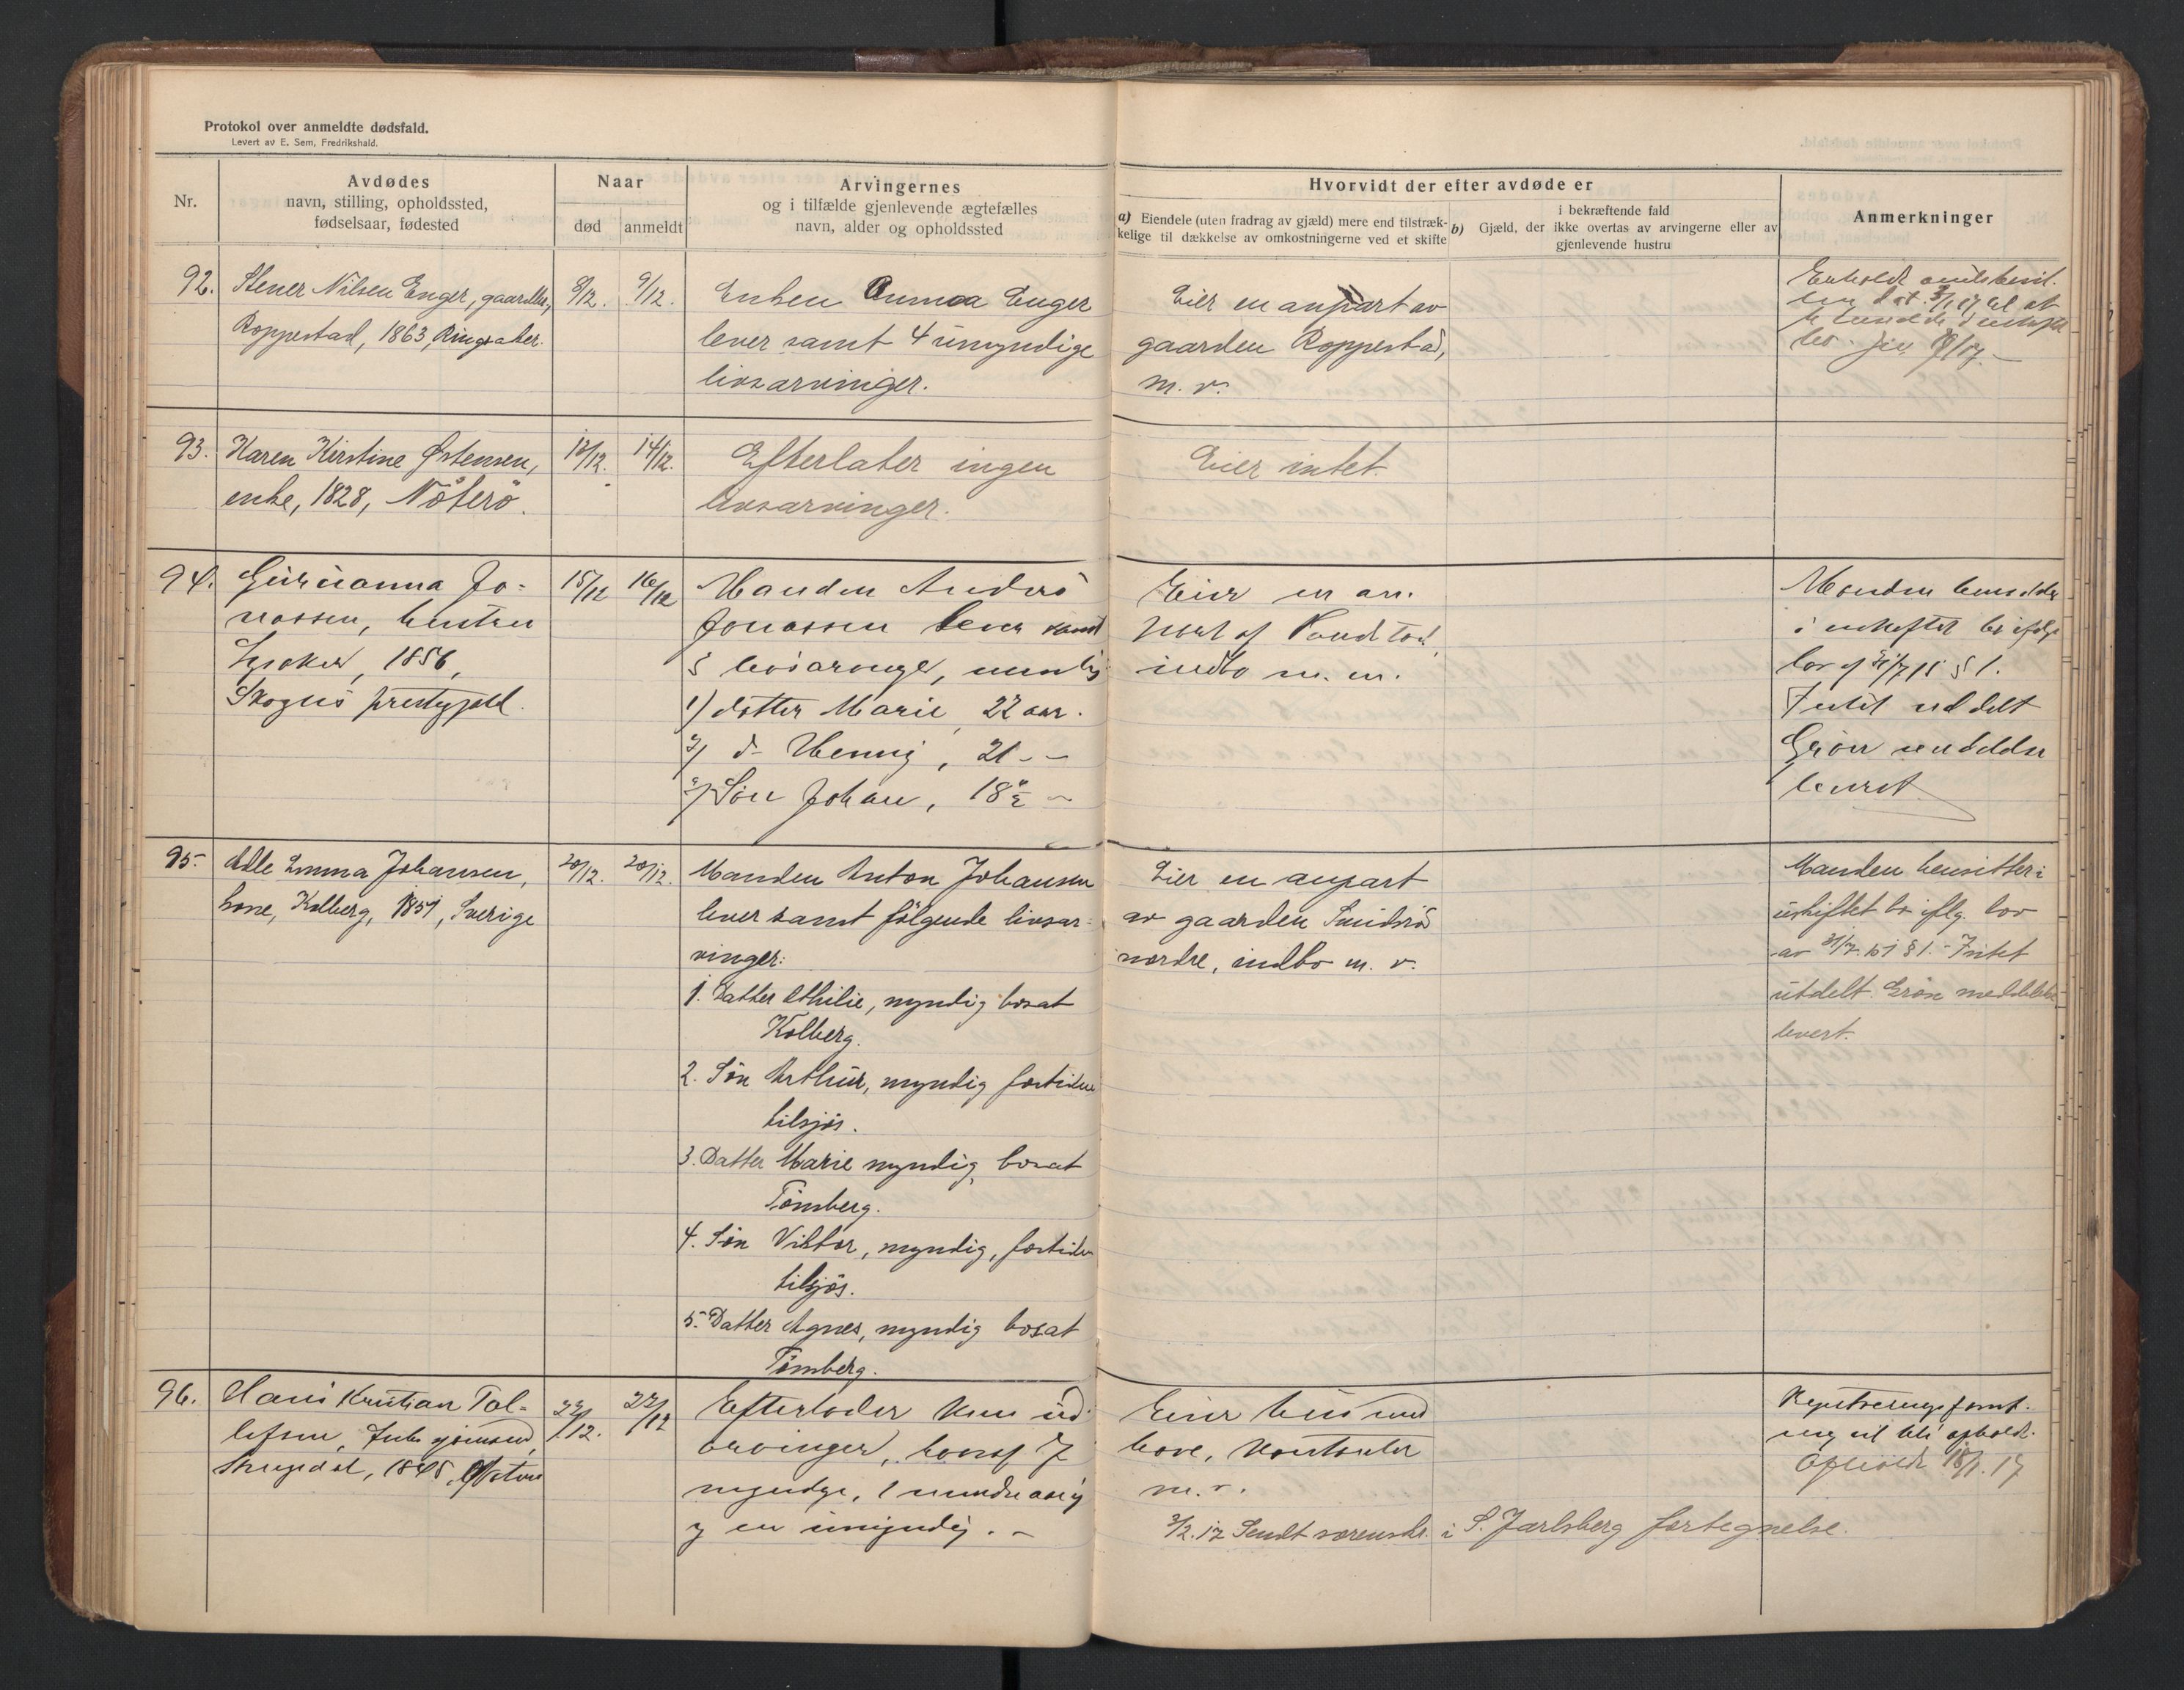 Protokol over anmeldte dødsfald.
Levert av E. Sem, Fredrikshald.
Nr.
Avdødes
navn, stilling, opholdssted,
fødselsaar, fødested
Naar
død
anmeldt
Arvingernes
og i tilfælde gjenlevende ægtefælles
navn, alder og opholdssted
Hvorvidt der efter avdøde er
a) Eiendele (uten fradrag av gjæld) mere end tilstræk-
kelige til dækkelse av omkostningerne ved et skifte
b) Gjæld, der
i bekræftende fald
ikke overtas av arvingerne eller av
gjenlevende hustru
Anmerkninger
92.
Stener Nilsen Enger,
Roppestad, 1863, Ringsaker.
8/12.
9/12.
Enken Anna Enger
lever samt 4 umyndige
livsarvinger.
Eier en anpart av
gaarden Roppestad,
m. v.
93.
Karen Kirstine Østensen,
enke, 1828, Nøterø.
12/12.
14/12.
Efterlater ingen
livsarvinger.
Eier intet.
94.
Gurianna Jo-
nassen, hustru
1856,
prestegjæld.
15/12
16/12
Manden Andreas
Jonassen lever samt
3 livsarvinger, nemlig
1) datter Marie, 22 aar.
2) d- Henny, 21 - -
3) Søn Johan, 18 1/2 -
Eier en an-
part af
indbo m. m.
Manden hensidder
i uskiftet bo ifølge
lov af 31/7 15 § 1.
Intet uddelt
levert
95.
Adle Emma Johansen,
kone, Kolberg, 1851, Sverige
20/12.
20/12.
Manden Anton Johansen
lever samt følgende livsar-
vinger:
1. Datter Othilie, myndig bosat
Kolberg.
2. Søn Arthur, myndig fortiden
tilsjøs.
3. Datter Marie myndig, bosat
Tönsberg.
4. Søn Viktor, myndig, fortiden
tilsjøs.
5. Datter Agnes, myndig bosat
Tönsberg.
Eier en anpart
av gaarden Smidsrød
nordre, indbo m. v.
Manden hensitter i
uskiftet bo iflg. lov
av 31/7. § 1. - Intet
utdelt.
levert.
96.
Hans Kristian Tol-
lefsen,
1845,
22/12.
22/12
Efterlader kun ud-
arvinger, hvoraf 7
myndige, 1 mindreaarig
og en umyndig. -
Eier hus med
have, kontanter
m. v.
3/2. 17 Sendt sorenskr. i S. Jarlsberg fortegnelse.
Registreringsforret-
ning vil bli afholdt.
Afholdt 18/1. 17